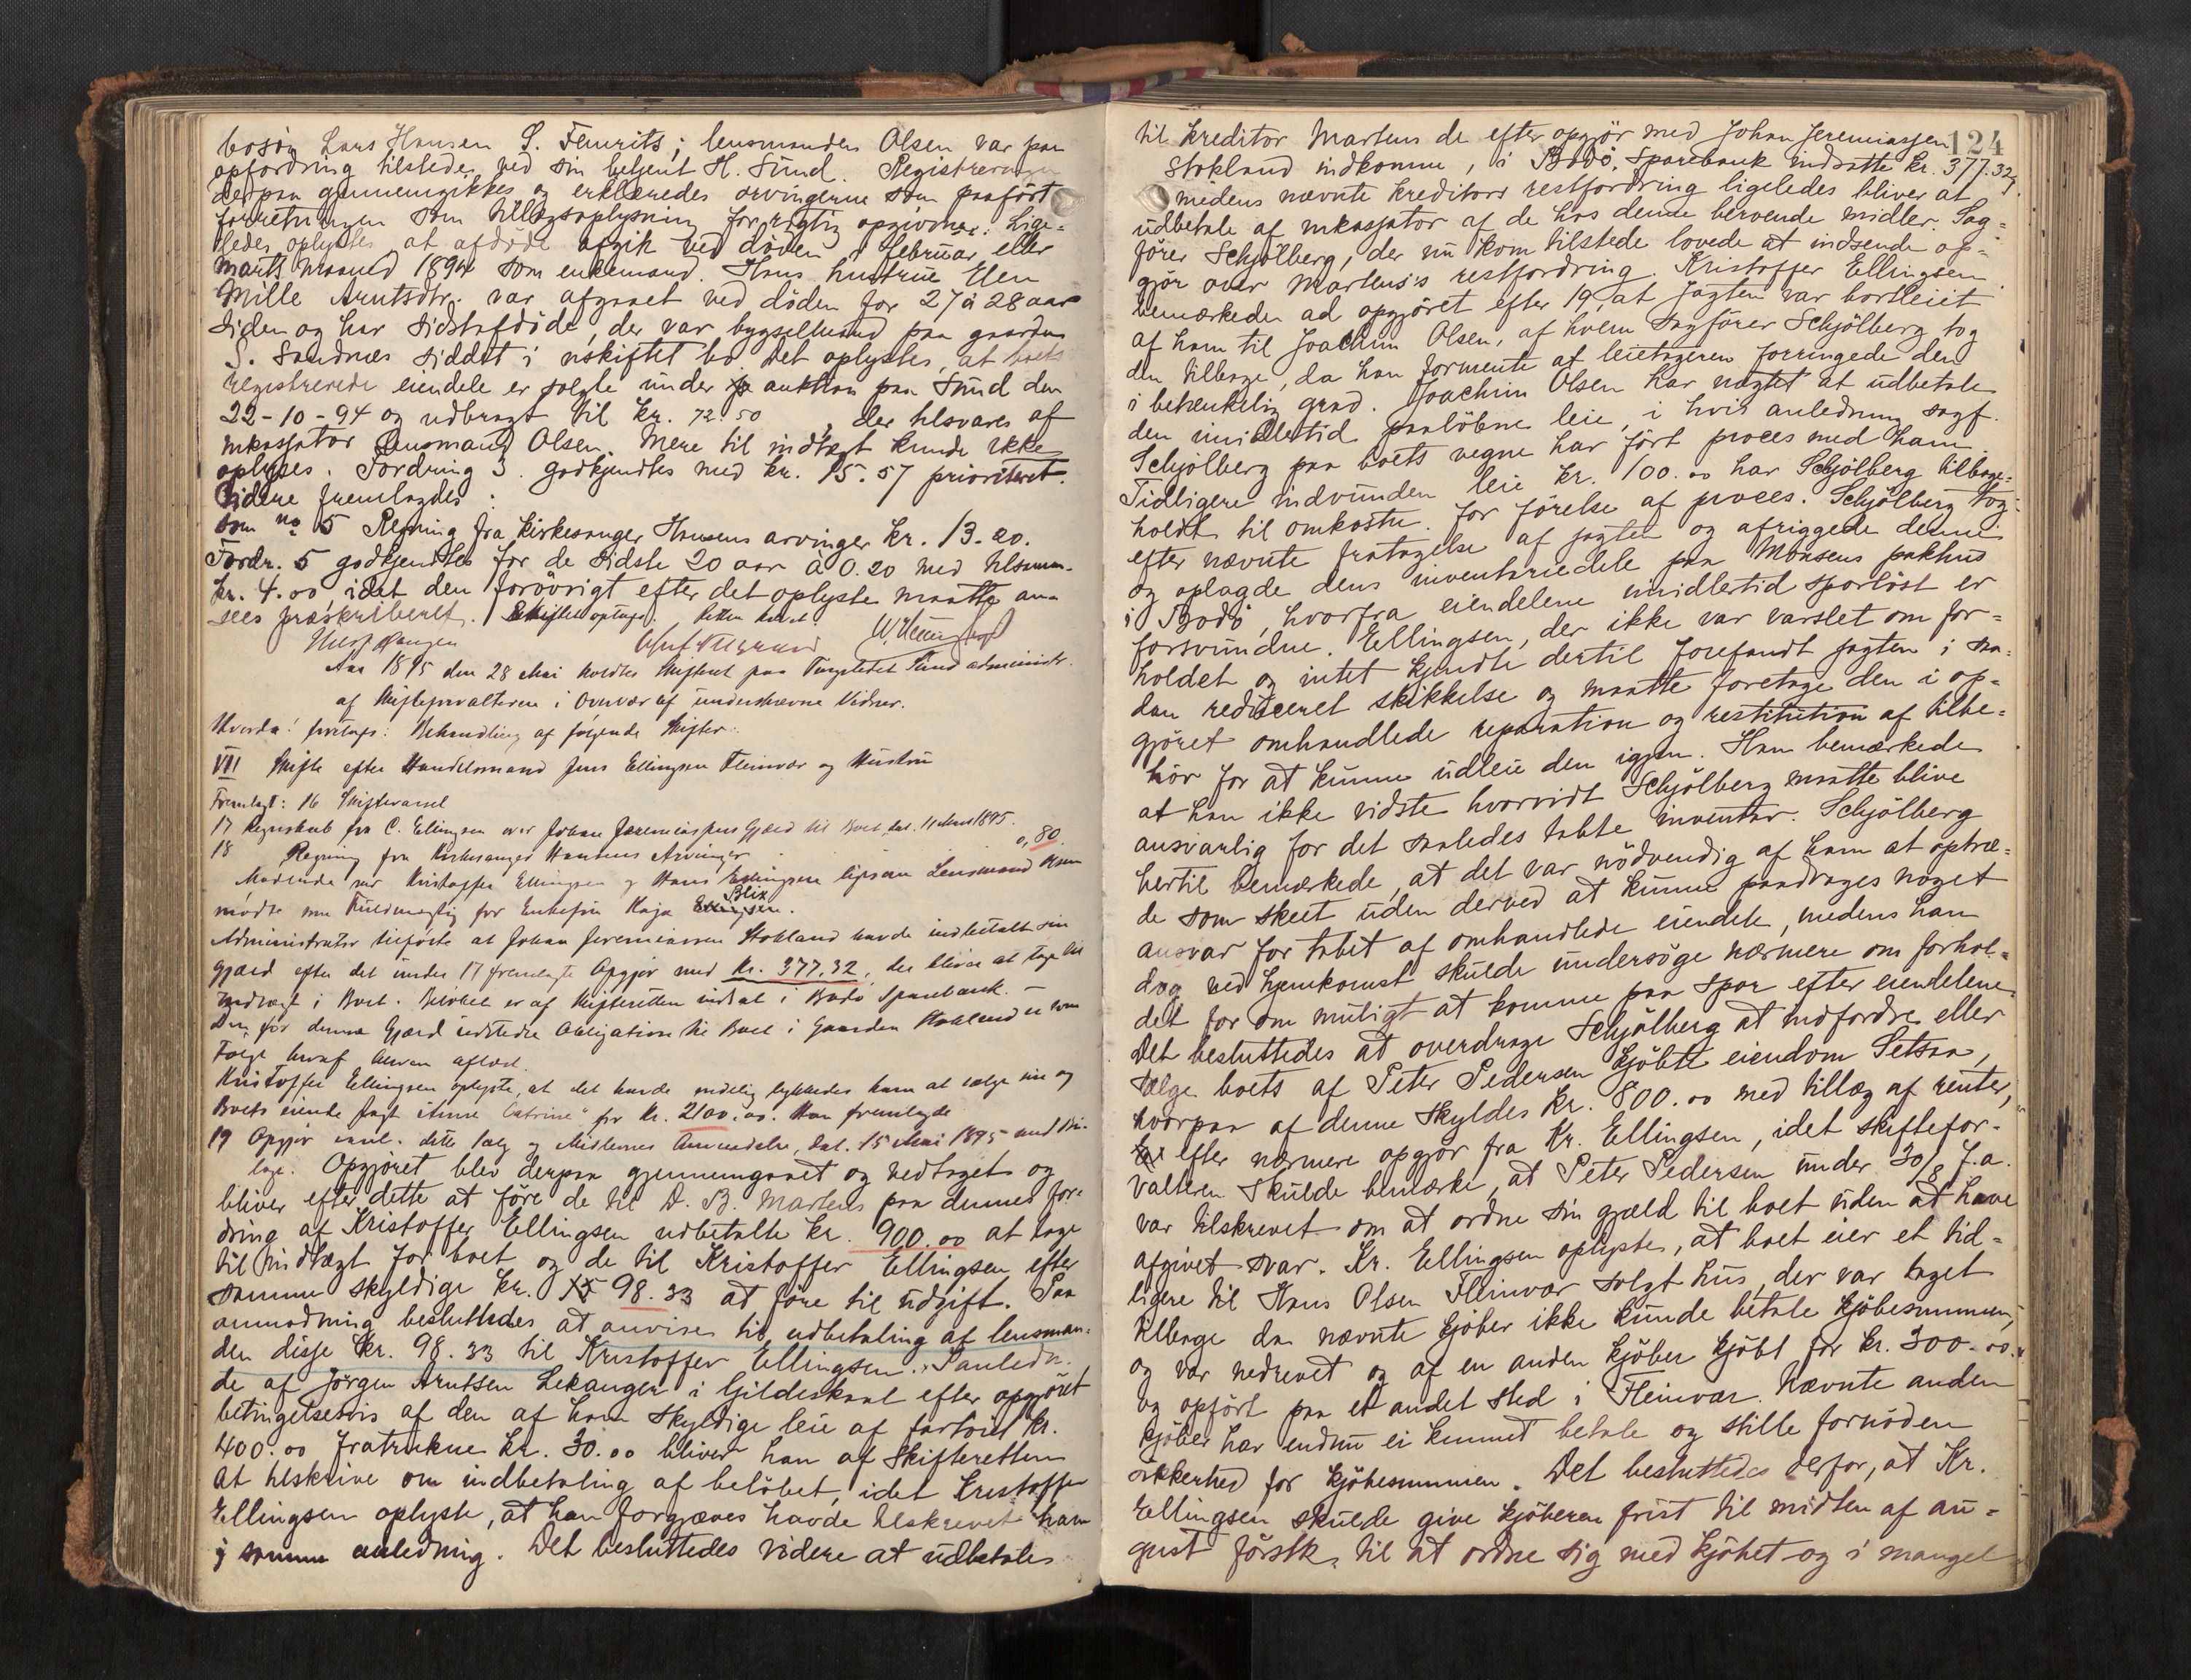 bosög Lars Hansen S. Fenrits; lensmanden Olsen var paa
opfordring tilstede ved sin betjent H. Sund. Registreringen
derpaa gjennemgikkes og erklæredes arvingerne som paaført
forretningen som tillægsoplysning for rigtig opgivne. Lige-
ledes oplystes at afdöde afgik ved döden i februar eller
marts maaned 1894 som enkemand. Hans hustrue Elen
Mille Arntsdtr. var afgaaet ved döden for 27 à 28 aar
siden og har sidstafdöde, der var bygselmand paa gaarden
S. Sandnæs siddet i uskiftet bo. Det oplystes, at boets
registrerede eiendele er solgte under auktion paa Sund den
22-10-94 og udbragt til kr. 72.50, der tilsvares af
inkassator lensmand Olsen. Mere til indtægt kunde ikke
oplyses. Fordring 3. godkjendtes med kr. 15.57 prioriteret.
Videre fremlagdes:
som no 5 Regning fra kirkesanger Hansens arvinger kr. 13.20.
Fordr. 5 godkjendtes for de sidste 20 aar à 0.20 med tilsamm.
kr. 4.00 idet den forövrigt efter det oplyste maatte an-
sees præskriberet. Skiftet optages. Retten hævet.
Aar 1895 den 28 Mai holdtes Skifteret paa Tingstedet Sund administr.
af Skifteforvalteren i Overvær af underskrevne Vidner.
Hvorda! foretoges: Behandling af følgende Skifter:
VII Skifte efter Handelsmand Jens Ellingsen Fleinvær og Hustru
Fremlagt: 16 Skiftevarsel
17 Regnskab fra C. Ellingsen over Johan Jeremiassens Gjæld til Boet dat. 11 Mars 1895.
18 Regning fra Kirkesanger Hansens Arvinger 0,80
Mødende var Kristoffer Ellingsen og Hans Ellingsen ligesom Lensmand Olsen
mødte som Fuldmægtig for Enkefru Kaja Ellingsen Blix.
Administrator tilførte at Johan Jeremiassen Stokland havde indbetalt sin
Gjæld efter det under 17 fremlagte Opgjør med Kr. 377,32, der bliver at tage til
Indtægt i Boet. Beløbet er af Skifteretten indsat i Bodø Sparebank. —
Den for denne Gjæld udstedte Obligation til Boet i Gaarden Stokland er som
Følge heraf bleven aflæst.
Kristoffer Ellingsen oplyste, at det havde endelig lykkedes ham at sælge sin og
Boets eiende Jagt "Anne Catrine" for Kr. 2100.00. Han fremlagde
19 Opgjør anl. dette Salg og Midlernes Anvendelse, dat. 15 Mai 1895 med Bi-
lage. Opgjöret blev derpaa gjennemgaaet og vedtaget og
bliver efter dette at före de til D. B. Martens paa dennes for-
dring af Kristoffer Ellingsen udbetalte kr. 900.00 at tage
til indtægt for boet og de til Kristoffer Ellingsen efter
samme skyldige kr. 98.33 at före til udgift. Paa
anmodning besluttedes at anvise til udbetaling af lensman-
den disse kr. 98.33 til Kristoffer Ellingsen. I anledn.
de af Jörgen Arntsen Lekanger i Gildeskaal efter opgjöret
betingelsesvis af den af ham skyldige leie af fartöiet kr.
400.00 fratrukne kr. 30.00 bliver han af Skifteretten
at tilskrive om indbetaling af belöbet, idet Kristoffer
Ellingsen oplyste, at han forgjæves havde tilskrevet ham
i samme anledning. Det besluttedes videre at udbetale
124
til kreditor Martens de efter opgjör med Johan Jeremiassen
Stokland indkomne, i Bodö Sparebank indsatte kr. 377.32,
medens nævnte kreditors restfordring ligeledes bliver at
udbetale af inkassator af de hos denne beroende midler. Sag-
förer Schjölberg, der nu kom tilstede lovede at indsende op-
gjör over Martens's restfordring. Kristoffer Ellingsen
bemærkede ad opgjöret efter 19, at jagten var bortleiet
af ham til Joachim Olsen, af hvem sagförer Schjölberg tog
den tilbage, da han formente at leietageren forringede den
i betænkelig grad. Joachim Olsen har nægtet at udbetale
den imidlertid paalöbne leie, i hvis anledning sagf.
Schjölberg paa boets vegne har fört proces med ham.
Tidligere indvunden leie kr. 100.00 har Schjölberg tilbage-
holdt til omkostn. for förelse af proces. Schjölberg tog
efter nævnte fratagelse af jagten og afriggede denne
og oplagde dens inventariedele paa Monsens pakhus
i Bodö, hvorfra eiendelene imidlertid sporlöst er
forsvundne. Ellingsen, der ikke var varslet om for-
holdet og intet kjendte dertil forefandt jagten i saa-
dan reduceret skikkelse og maatte foretage den i op-
gjöret omhandlede reparation og restitution af tilbe-
hör for at kunne udleie den igjen. Han bemærkede
at han ikke vidste hvorvidt Schjölberg maatte blive
ansvarlig for det saaledes tabte inventar. Schjölberg
hertil bemærkede, at det var nödvendig af ham at optræ-
de som skeet uden derved at kunne paadrages noget
ansvar for tabet af omhandlede eiendele, medens han
dog ved hjemkomst skulde undersöge nærmere om forhol-
det for om muligt at komme paa spor efter eiendelene.
Det besluttedes at overdrage Schjölberg at indfordre eller
sælge boets af Peter Pedersen kjöbte eiendom Setsaa,
hvorpaa af denne skyldes kr. 800.00 med tillæg af renter,
efter nærmere opgjör fra Kr. Ellingsen, idet skiftefor-
valteren skulde bemærke, at Peter Pedersen under 30/8 f.a.
var tilskrevet om at ordne sin gjæld til boet uden at have
afgivet svar. Kr. Ellingsen oplyste, at boet eier et tid-
ligere til Hans Olsen Fleinvær solgt hus, der var taget
tilbage da nævnte kjöber ikke kunde betale kjöbesummen,
og var nedrevet og af en anden kjöber kjöbt for kr. 300.00.
og opfört paa et andet sted i Fleinvær. Nævnte anden
kjöber har endnu ei kunnet betale og stille fornöden
sikkerhed for kjöbesummen. Det besluttedes derfor, at Kr.
Ellingsen skulde give kjöberen frist til midten af au-
gust förstk. til at ordne sig med kjöbet og i mangel